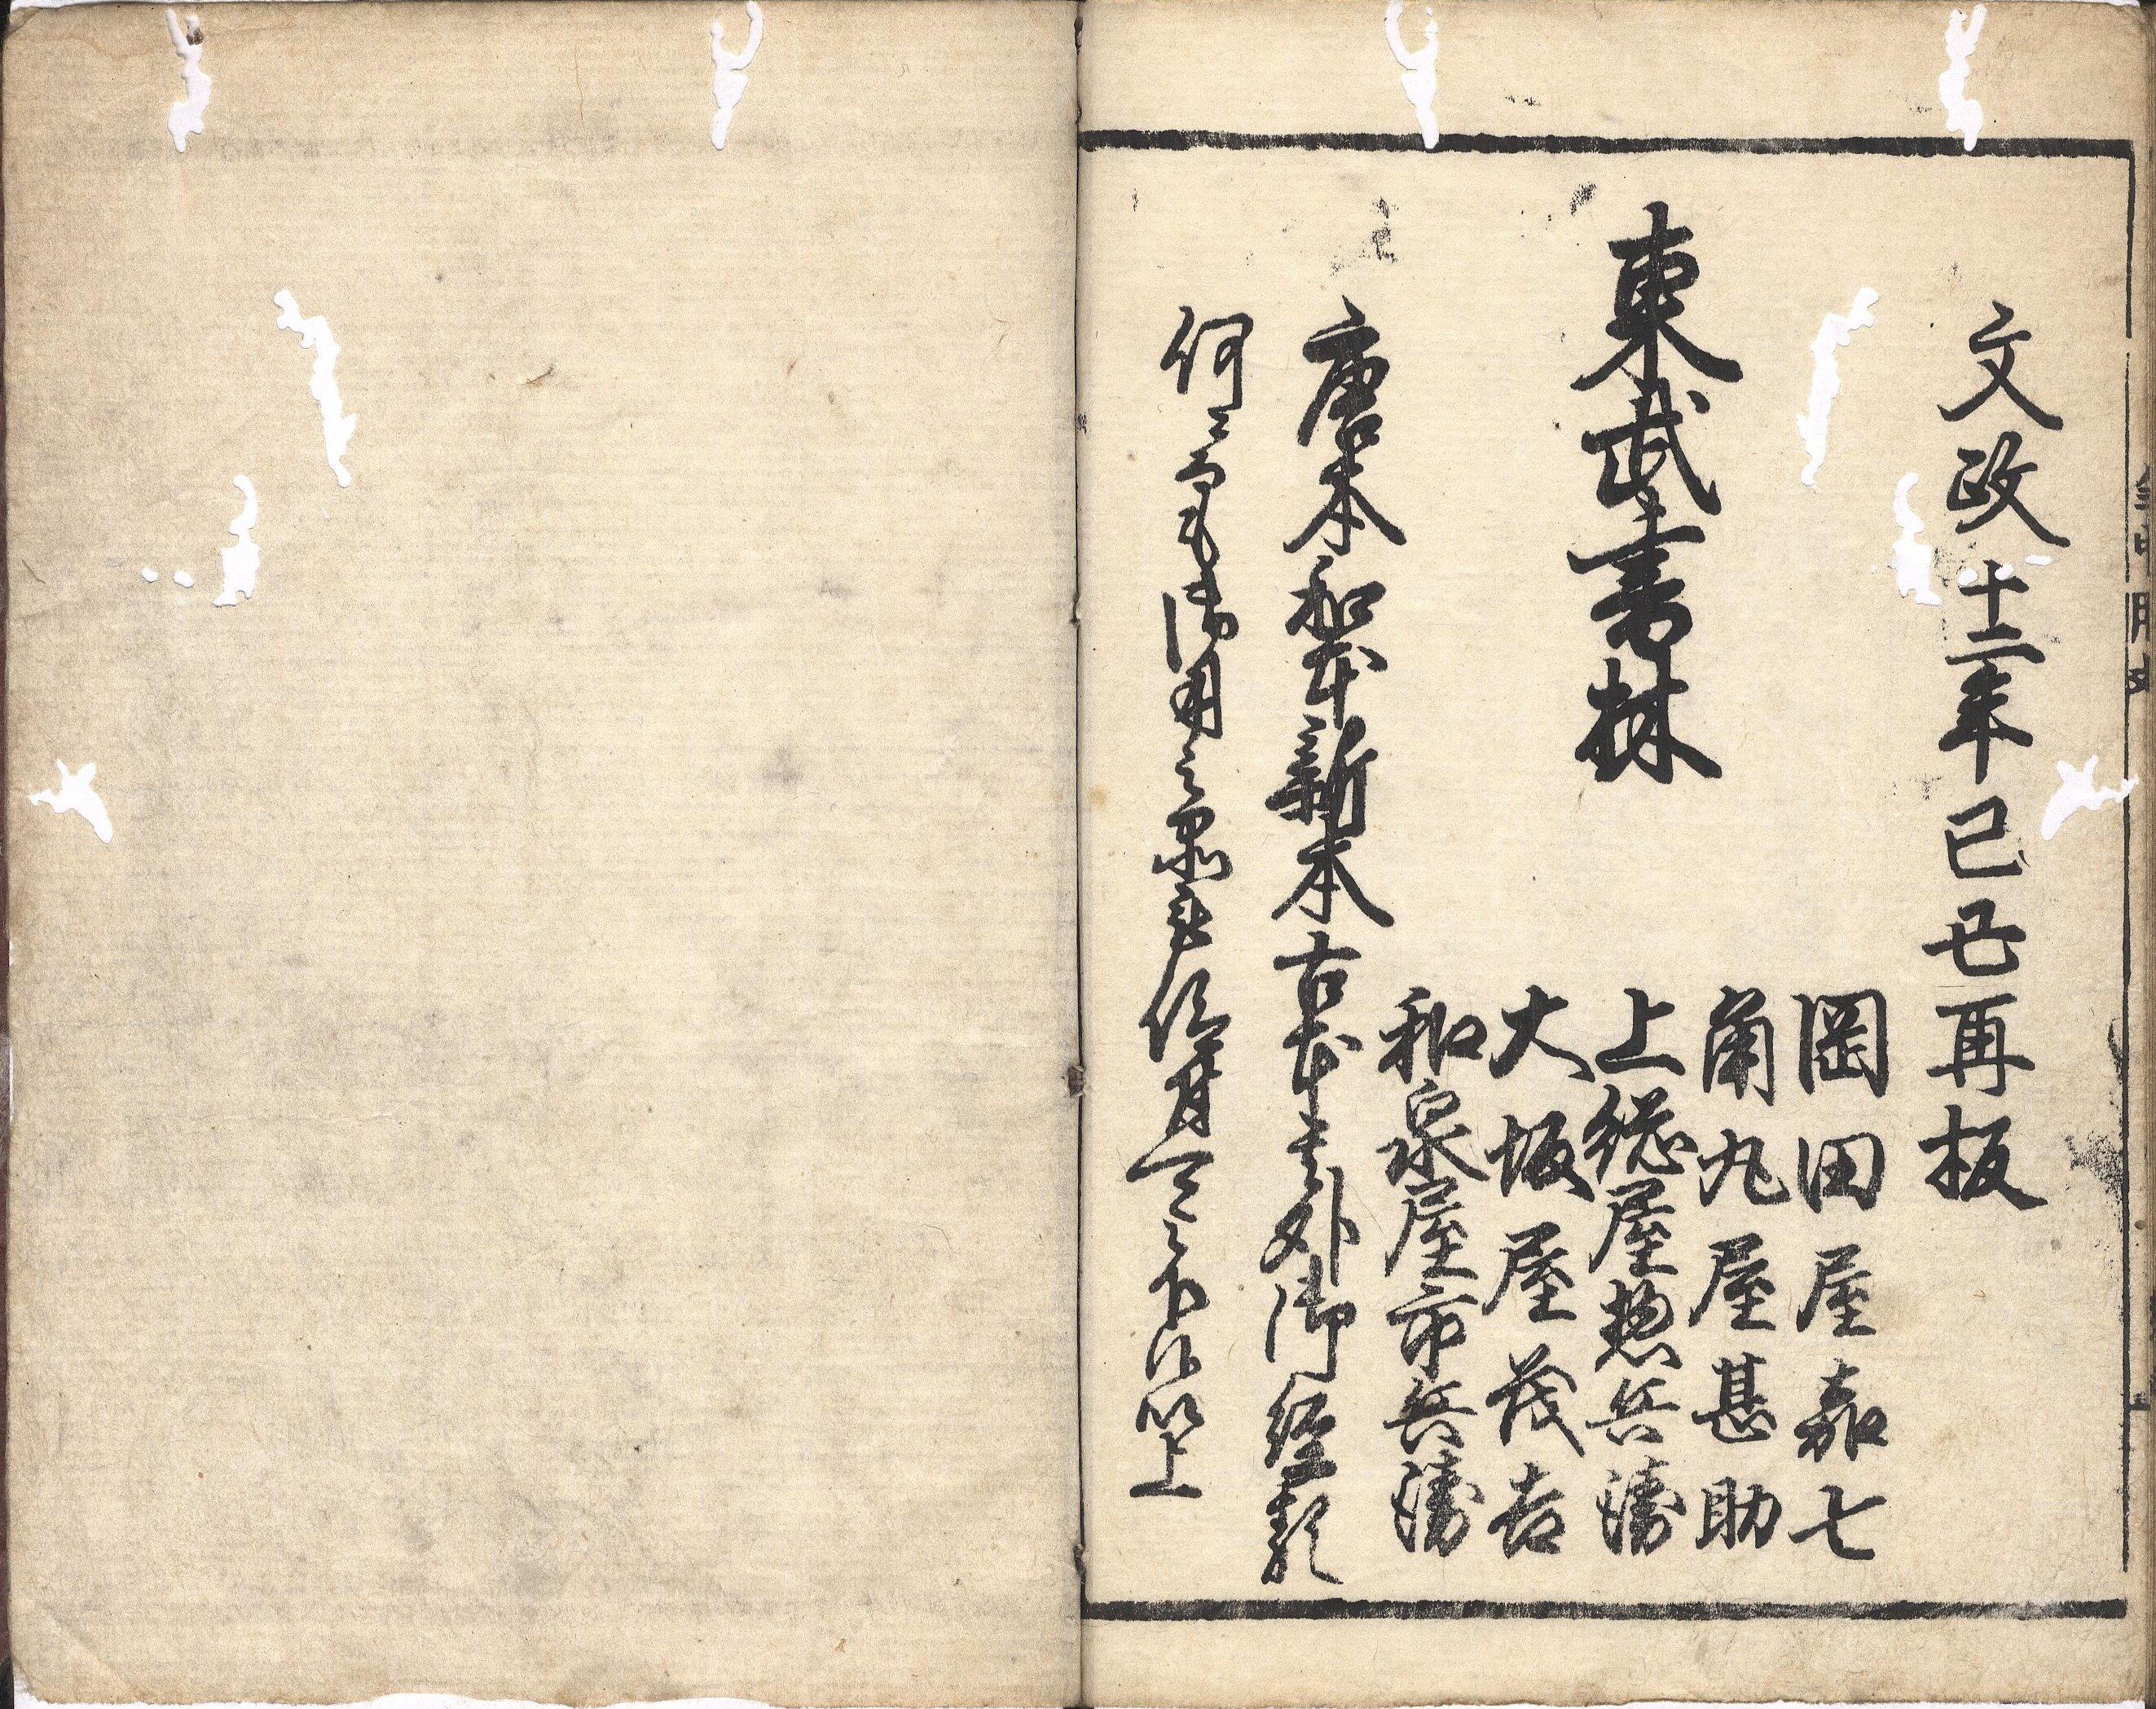 文政十二年己丑再板
東武書林
岡田屋嘉七
角丸屋甚助
上総屋惣兵衛
大坂屋茂吉
和泉屋市兵衛
唐本和本新本古本其外御経類
何ニ而も御用之 以上